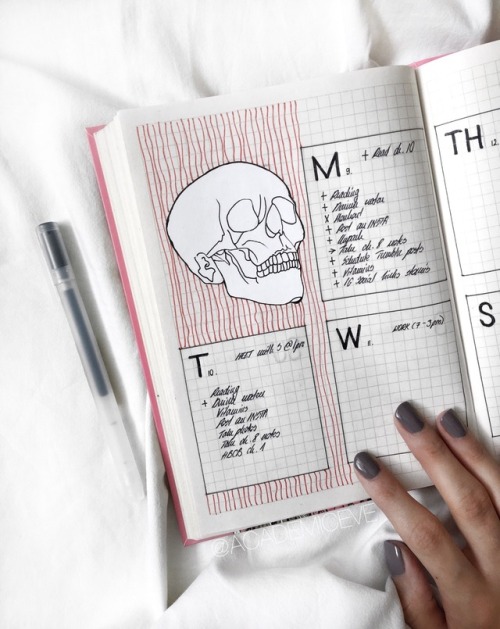 M 9.
+ Read ch. 10
+ Reading
+ Drink water
x Workout
+ Post on INSTA
+ Unpack
> Take ch. 8 notes
+ Schedule Tumblr posts
+ Vitamins
+ IG Social links
T 10.
MEET with S @ 1pm
Reading
+ Drink water
Vitamins
Post on INSTA
Take photos
Take ch. 8 notes
HBOB ch. 1
W 11.
WORK (7-3pm)
TH 12.
S